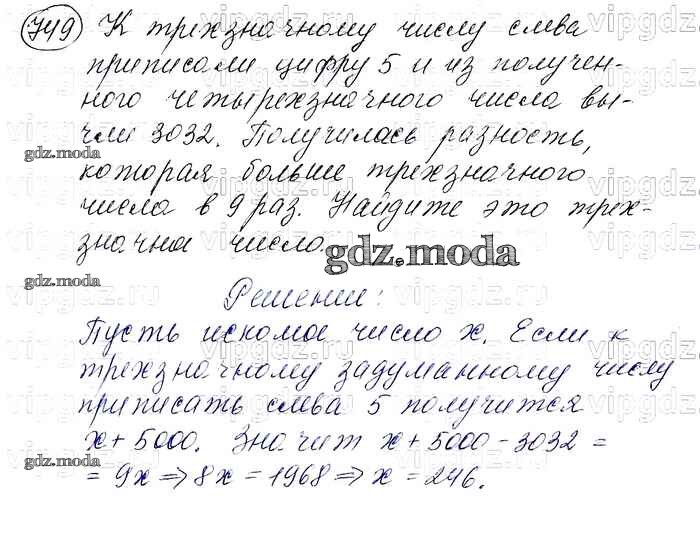 749 К трехзначному числу слева
приписали цифру 5 и из получен-
ного четырехзначного числа вы-
чли 3032. Получилась разность,
gdz.moda
которая больше трехзначного
числа в 9 раз. Найдите это трех-
значна число.
gdz.moda
gdz.moda
Решение:
Пусть искомое число x. Если к
gdz.moda
трехзначному задуманному числу
приписать слева 5 получится
x + 5000. Значит x + 5000 - 3032 =
gdz.moda
= 9x => 8x = 1968 => x = 246.